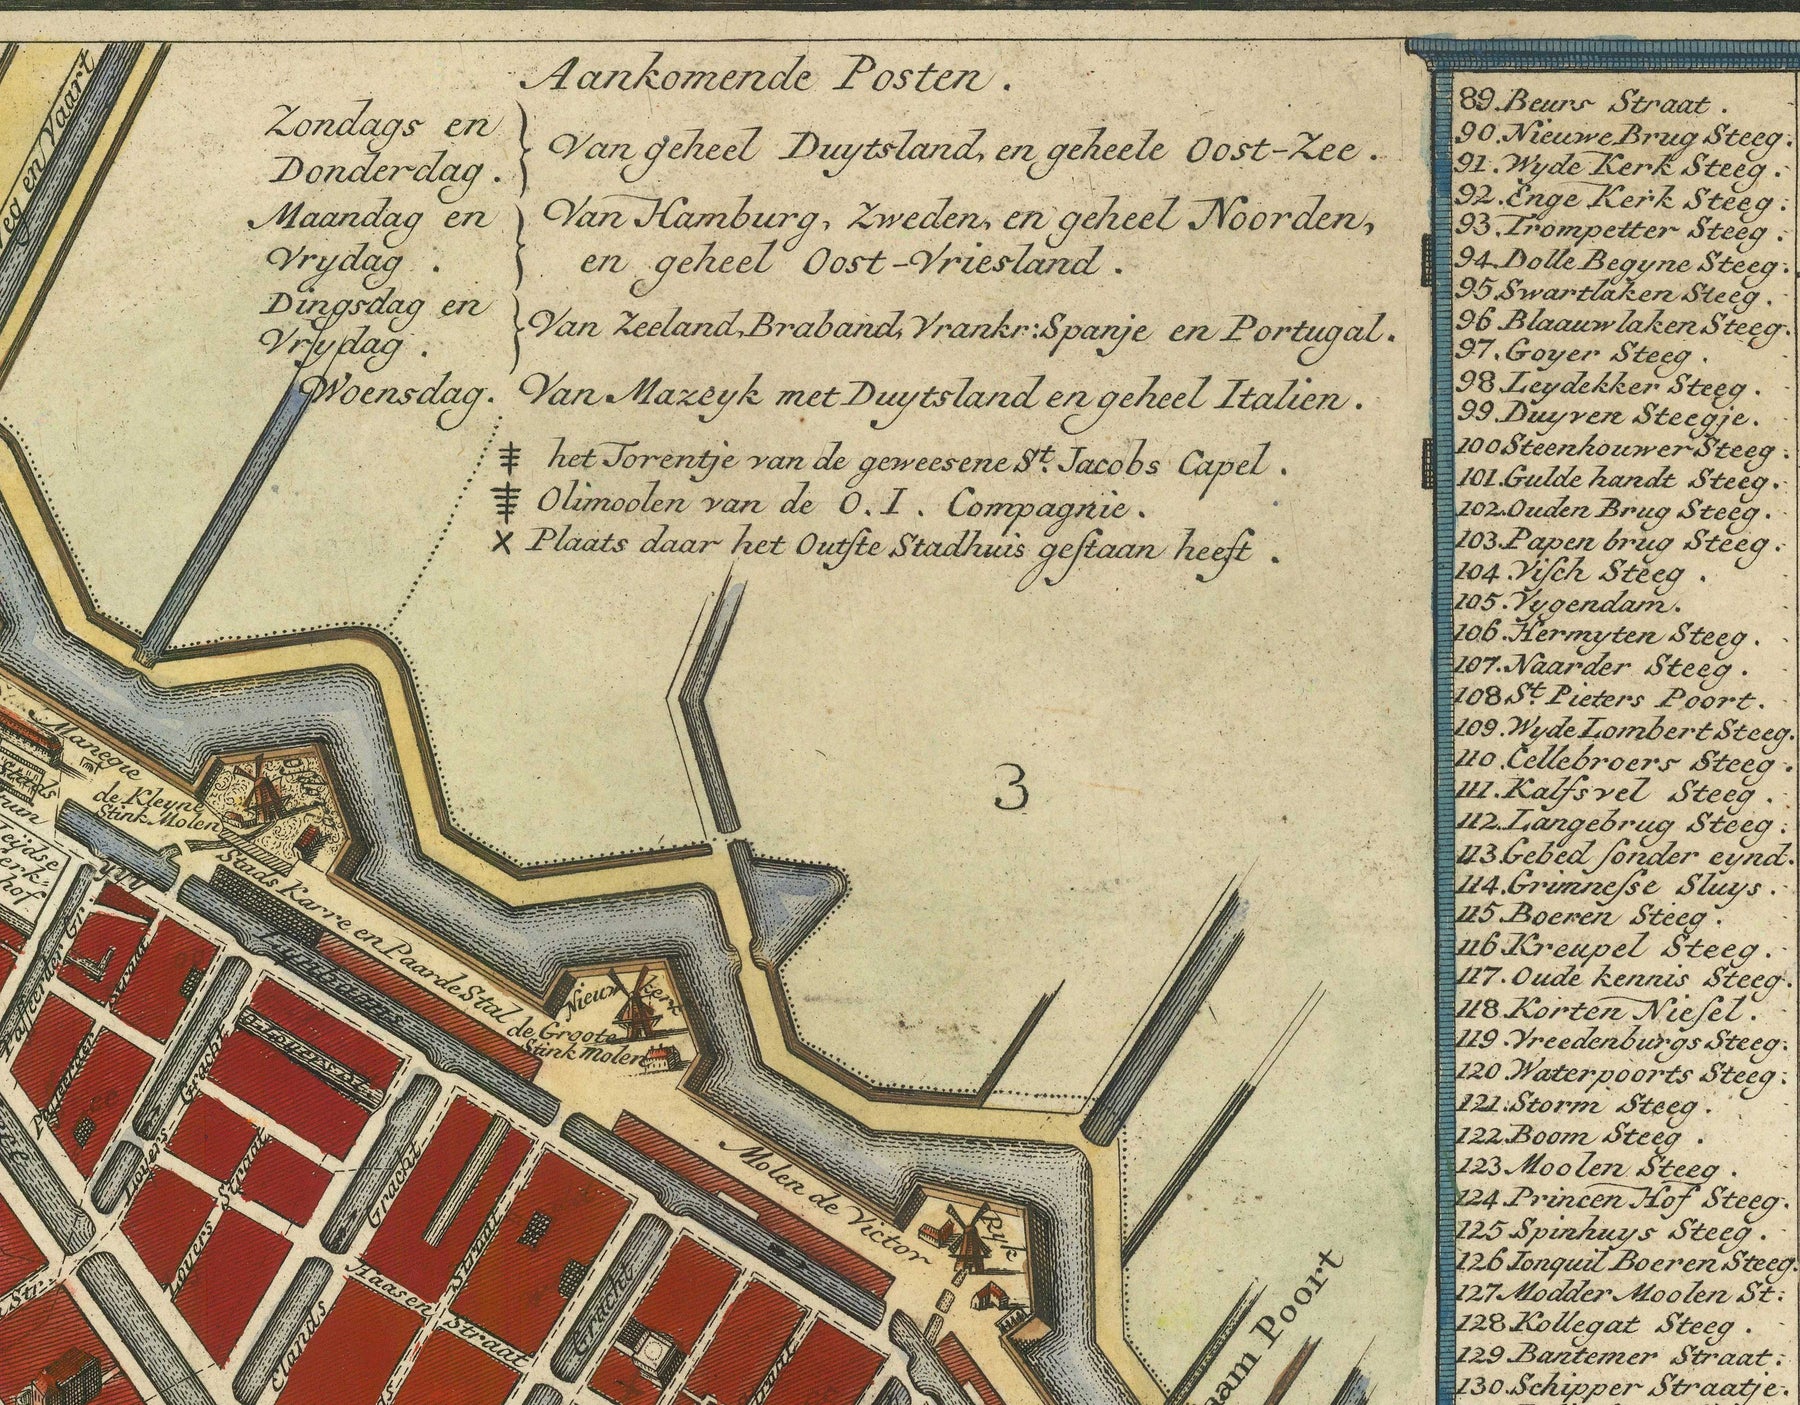 Aankomende Posten.
Zondags en
Donderdag.
Van geheel Duytsland, en geheele Oost-Zee.
Maandag en
Vrydag.
Van Hamburg, Zweden, en geheel Noorden,
en geheel Oost-Vriesland.
Dingsdag en
Vrydag.
Van Zeeland, Braband, Vrankr: Spanje en Portugal.
Woensdag. Van Mazeyk met Duytsland en geheel Italien.
het Torentje van de geweesene St. Jacobs Capel.
Olimoolen van de O.I. Compagnie.
X Plaats daar het Outste Stadhuis gestaan heeft.
3
en Vaart
Manegie
de Kleyne
Stink Molen
Stads Karre en Paarde Stal
Lynbaans
Nieuwkerk
de Groote
Stink Molen
Molen de Victor
Ryk
Leidse
Kerk-
hof
Gracht
Looyers Straat
Gracht
Haasen
Straat
Straat
Gracht
Elands
Straat
Poort
89. Beurs Straat.
90. Nieuwe Brug Steeg.
91. Wyde Kerk Steeg.
92. Enge Kerk Steeg.
93. Trompetter Steeg.
94. Dolle Begyne Steeg.
95. Swartlaken Steeg.
96. Blaauwlaken Steeg.
97. Goyer Steeg.
98. Leydekker Steeg.
99. Duyven Steegje.
100. Steenhouwer Steeg.
101. Gulde handt Steeg.
102. Ouden Brug Steeg.
103. Papen brug Steeg.
104. Visch Steeg.
105. Vygendam.
106. Hermyten Steeg.
107. Naarder Steeg.
108. St. Pieters Poort.
109. Wyde Lombert Steeg.
110. Cellebroers Steeg.
111. Kalfsvel Steeg.
112. Langebrug Steeg.
113. Gebed sonder eynd.
114. Grimnesse Sluys.
115. Boeren Steeg.
116. Kreupel Steeg.
117. Oude kennis Steeg.
118. Korten Niesel.
119. Vreedenburgs Steeg.
120. Waterpoorts Steeg.
121. Storm Steeg.
122. Boom Steeg.
123. Moolen Steeg.
124. Princen Hof Steeg.
125. Spinhuys Steeg.
126. Ionquil Boeren Steeg.
127. Modder Moolen St:
128. Kollegat Steeg.
129. Bantemer Straat.
130. Schipper Straatje.